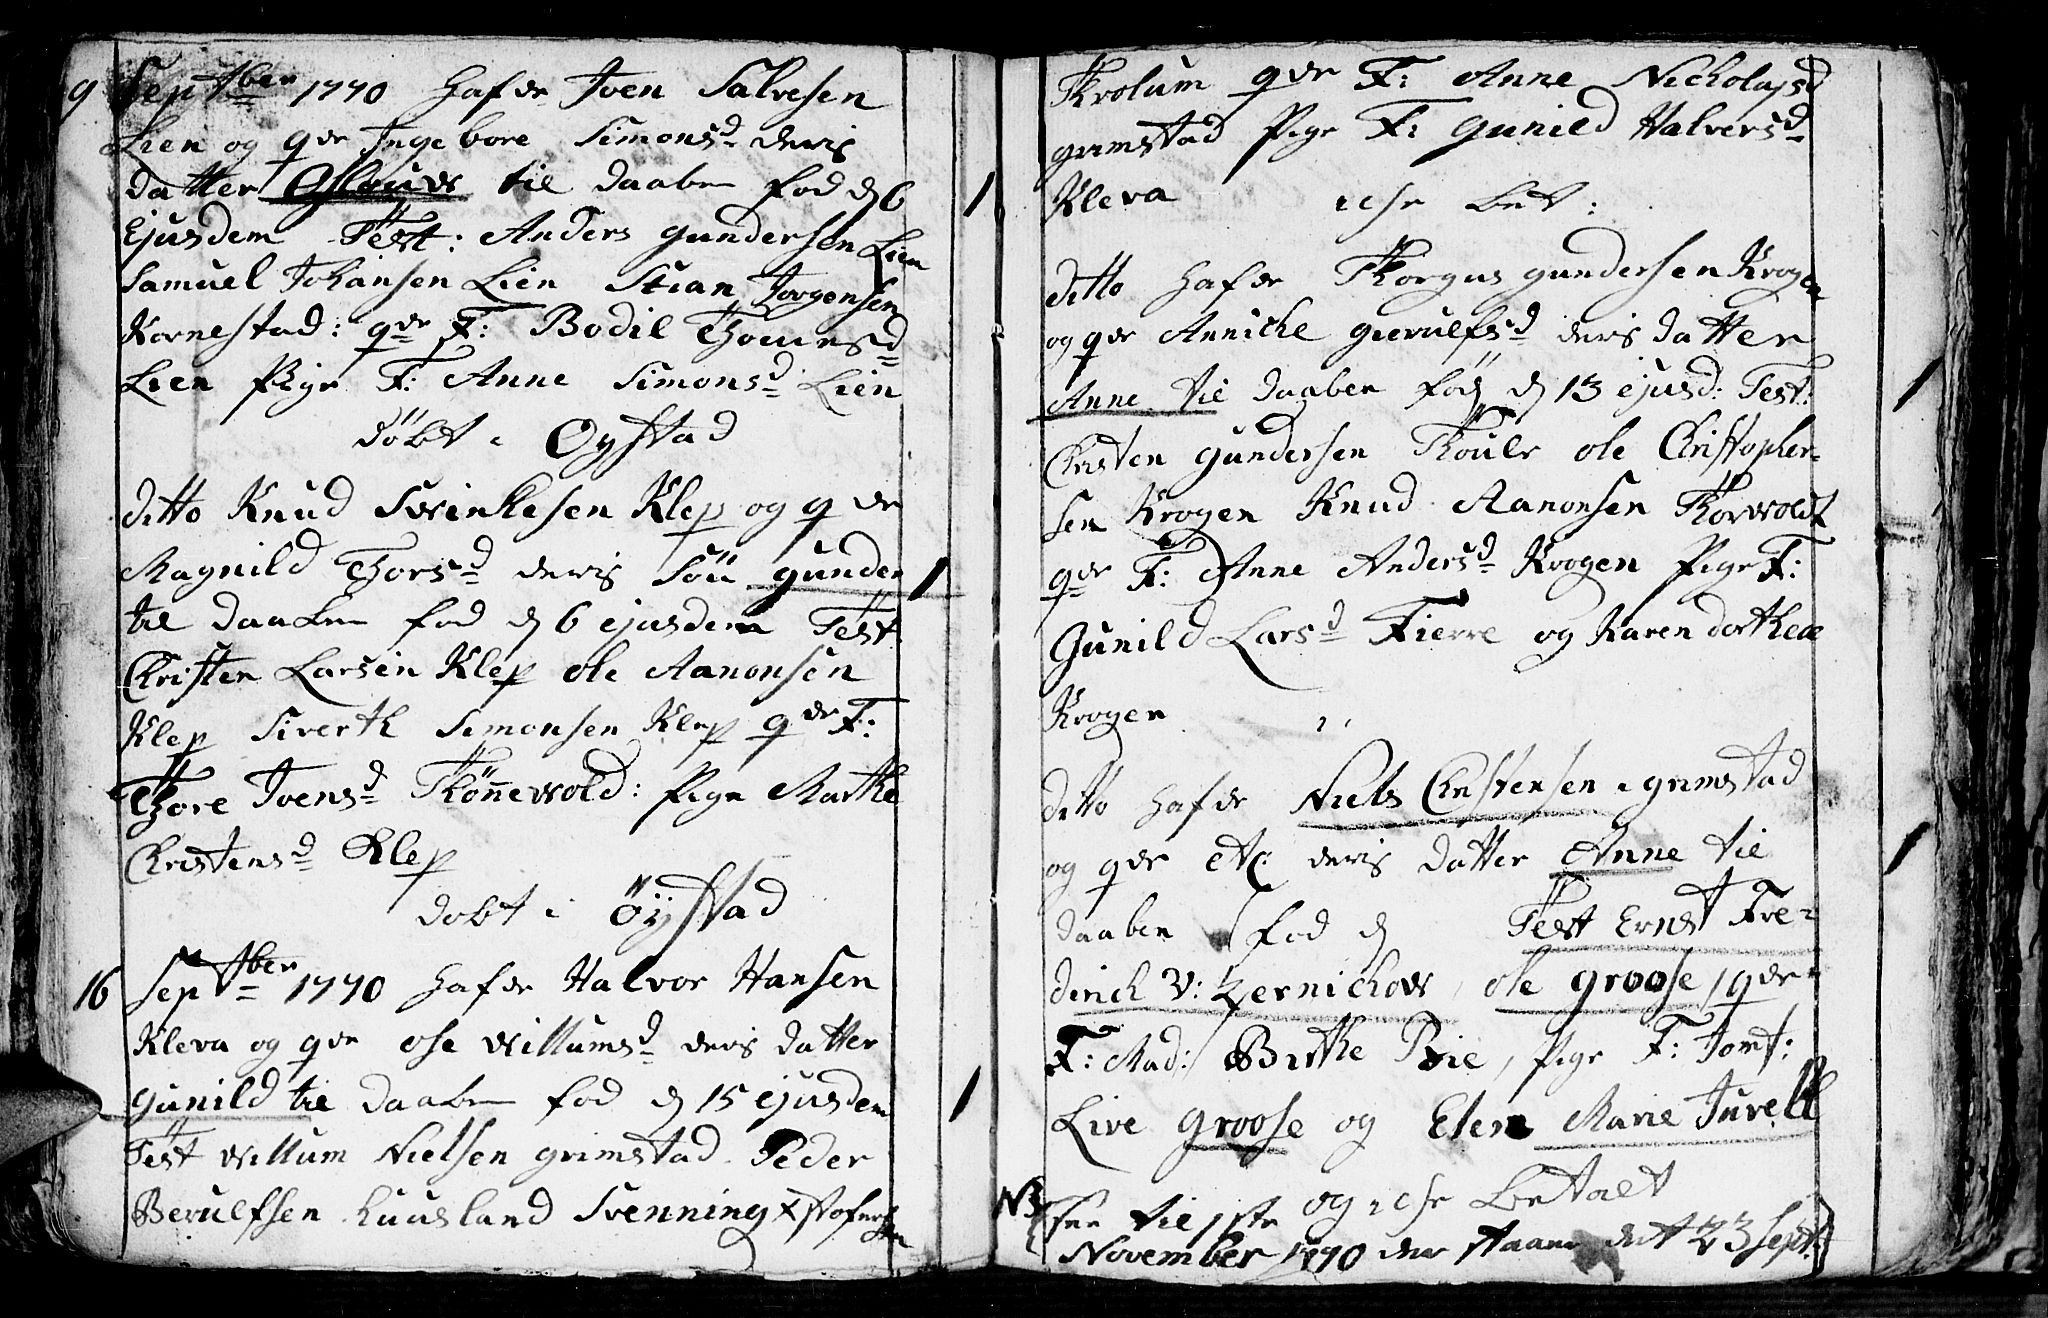 9 Septber 1770 hafde Joen Salvesen
Lien og qde Ingebore Simonsd deris
datter Aslouw til daaben fød d 6
Ejusdem Test: Anders gundersen Lien
Samuel Johansen Lien Stian Jorgensen
Kornestad: qde F: Bodil Thomesd
Lien Pige F: Anne Simonsd Lien
døbt i Oystad
ditto Knud Svenkesen Klep og qde
Magnild Thorsd deris Søn gunder 1
til daaben fød d 6 ejusdem Test
Christen Larsen Klep ole Aanonsen
Klep Siverth Simonsen Klep qde F:
Thore Joensd Thönnewold: Pige Marthe
Christensd Klep
døbt i Öystad
16 Septber 1770 hafde Halvor Hansen
Kleva og qde ose Willumsd deris datter
gunild til daaben fød d 15 ejusdem 1
Test Willum Nielsen grimstad Peder
Berulfsen Luusland Svenning Xstofersen
Trolum qde F: Anne Nicholaysd
grimstad Pige F: gunild Halversd
Kleva icke bet:
ditto hafde Thorgus gundersen Krogen
og qde Anniche gierulfsd deris datter
Anne til daaben fød d 13 ejusd: Test: 1
Christen gundersen ole Christopher-
sen Krogen Knud Aanonsen Thorwoldt
qde F: Anne Andersd Krogen Pige F:
Gunild Larsd Fierre og Karen dorthea
Krogen
ditto hafde Niels Christensen i grimstad
og qde etc deris datter Anne til 1
daaben fød d Test Ernst Fre-
derich V: ole groose, qde
F: Mad: Birthe Bie, Pige F: Jomf:
Live groose og Elen Marie Jurell
og icke betalt
NB see til 1ste
November 1770 der staar det 23 Sept: